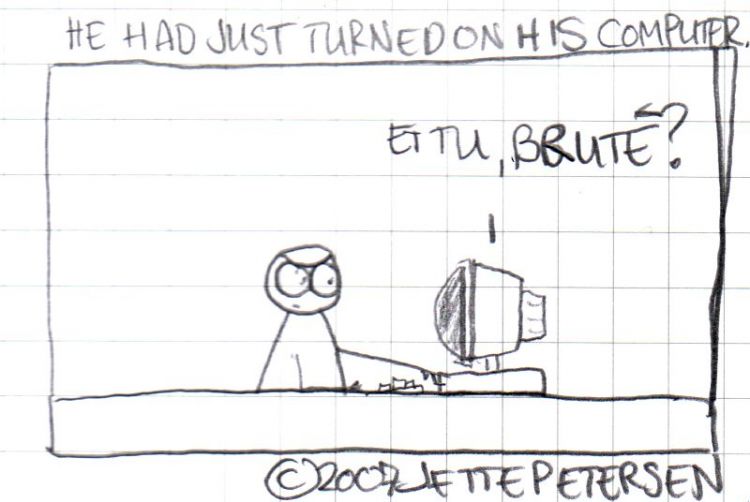 HE HAD JUST TURNED ON HIS COMPUTER.
ET TU, BRUTE?
©2007 JETTE PETERSEN